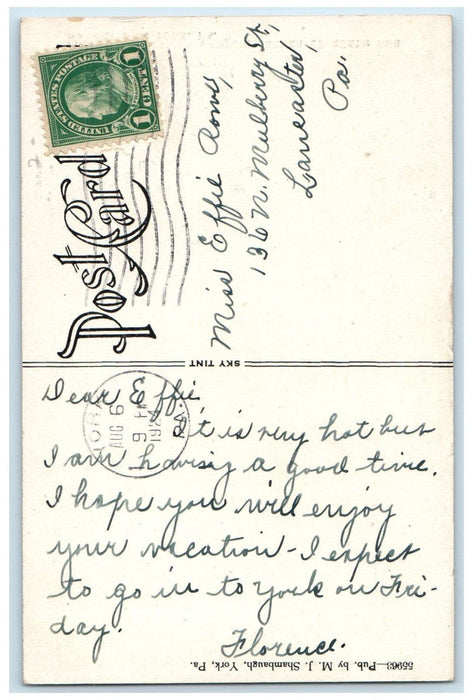 UNITED STATES POSTAGE
1 CENT 1
Post Card
Miss Effie Rowe,
136 N. Mulberry St,
Lancaster,
Pa.
SKY TINT
YORK
AUG 6
9
1924
PA.
Dear Effie
It is very hot but
I am having a good time.
I hope you will enjoy
your vacation - I expect
to go in to York on Fri-
day.
Florence.
55963—Pub. by M. J. Shambaugh, York, Pa.